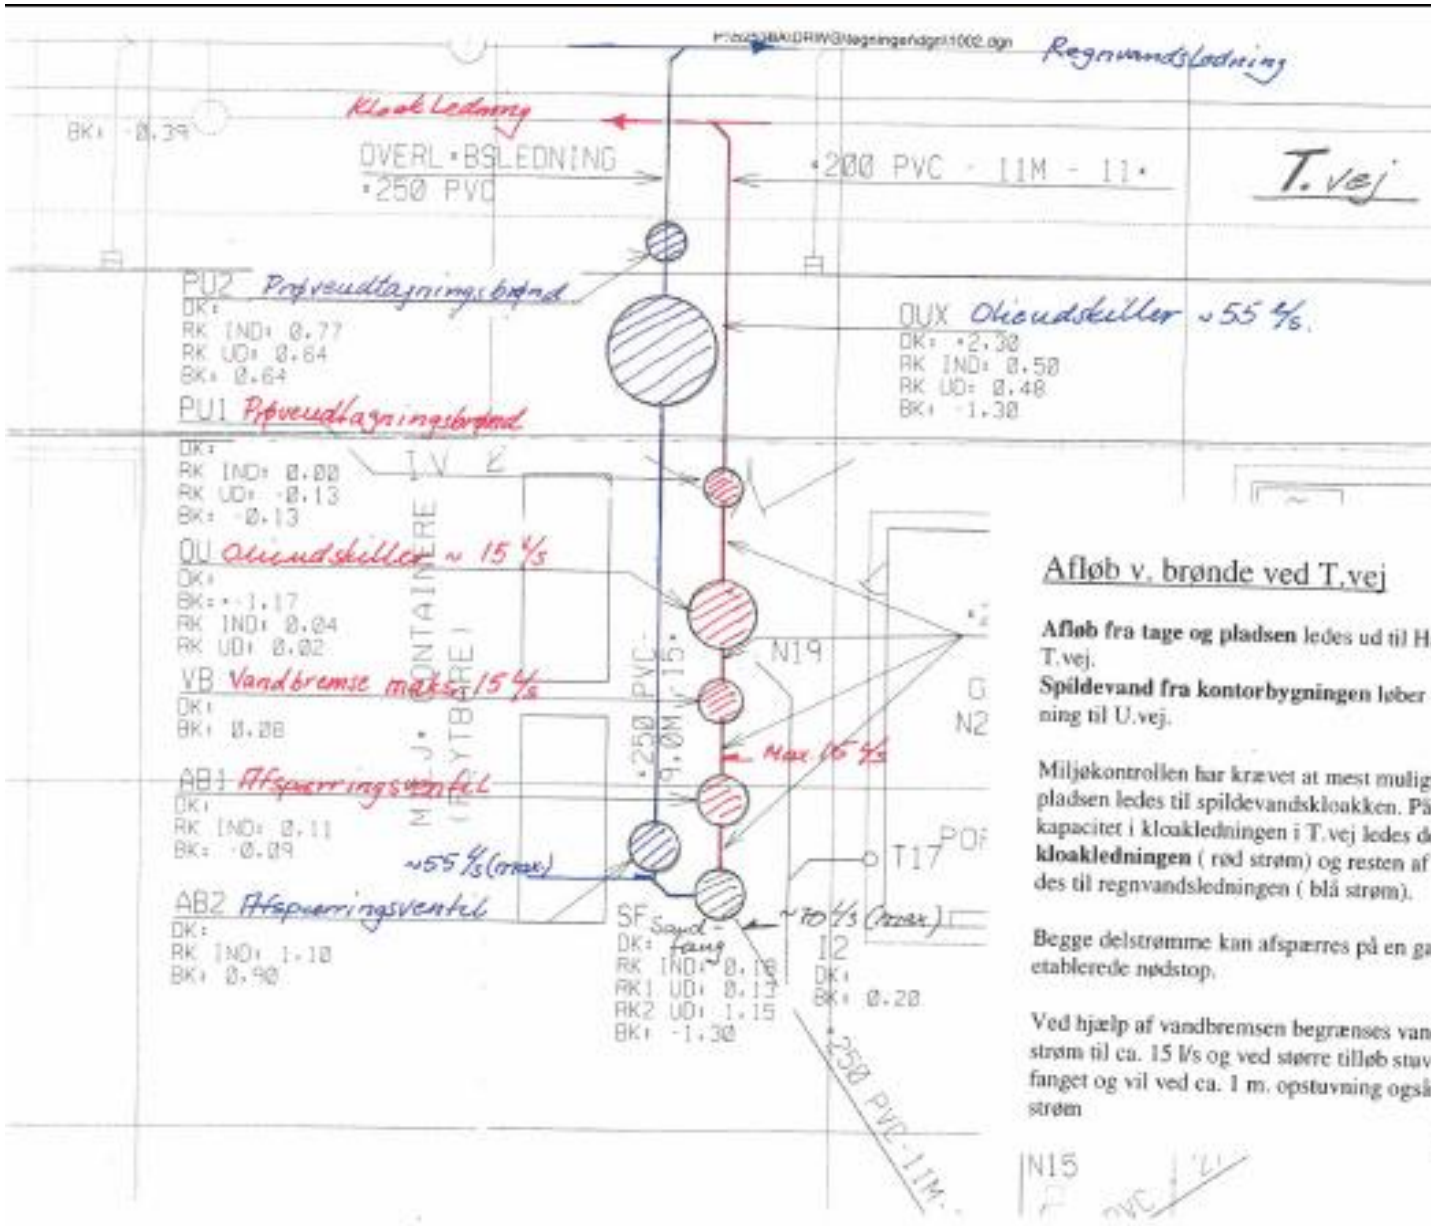 Regnvandsledning
Kloak Ledning
BK: -0.39
OVERL*BSLEDNING
*250 PVC
*200 PVC - 11M - 11*
T. vej
PU2 Prøveudtagningsbrønd
DK:
RK IND: 0.77
RK UD: 0.64
BK: 0.64
OUX Olieudskiller ~55 l/s.
DK: *2.30
RK IND: 0.50
RK UD: 0.48
BK: -1.30
PU1 Prøveudtagningsbrønd
DK:
RK IND: 0.00
RK UD: -0.13
BK: -0.13
OU Olieudskiller ~ 15 l/s
DK:
BK: *-1.17
RK IND: 0.04
RK UD: 0.02
VB Vandbremse maks. 15 l/s
DK:
BK: 0.08
AB1 Afspærringsventil
DK:
RK IND: 0.11
BK: -0.09
AB2 Afspærringsventil
DK:
RK IND: 1.10
BK: 0.90
CONTAINERE
*250 PVC-
19.0M-15*
N19
N2
Max 15 l/s
~55 l/s (max)
T17
~70 l/s (max)
SF Sandfang
DK:
RK IND: 0.18
RK1 UD: 0.13
RK2 UD: 1.15
BK: -1.30
I2
DK:
BK: 0.20
*250 PVC-11M-
Afløb v. brønde ved T.vej
Afløb fra tage og pladsen ledes ud til H
T.vej.
Spildevand fra kontorbygningen løber
ning til U.vej.
Miljøkontrollen har krævet at mest mulig
pladsen ledes til spildevandskloakken. På
kapacitet i kloakledningen i T.vej ledes de
kloakledningen ( rød strøm) og resten af
des til regnvandsledningen ( blå strøm).
Begge delstrømme kan afspærres på en ga
etablerede nødstop.
Ved hjælp af vandbremsen begrænses van
strøm til ca. 15 l/s og ved større tilløb stuv
fanget og vil ved ca. 1 m. opstuvning også
strøm
N15
PVC